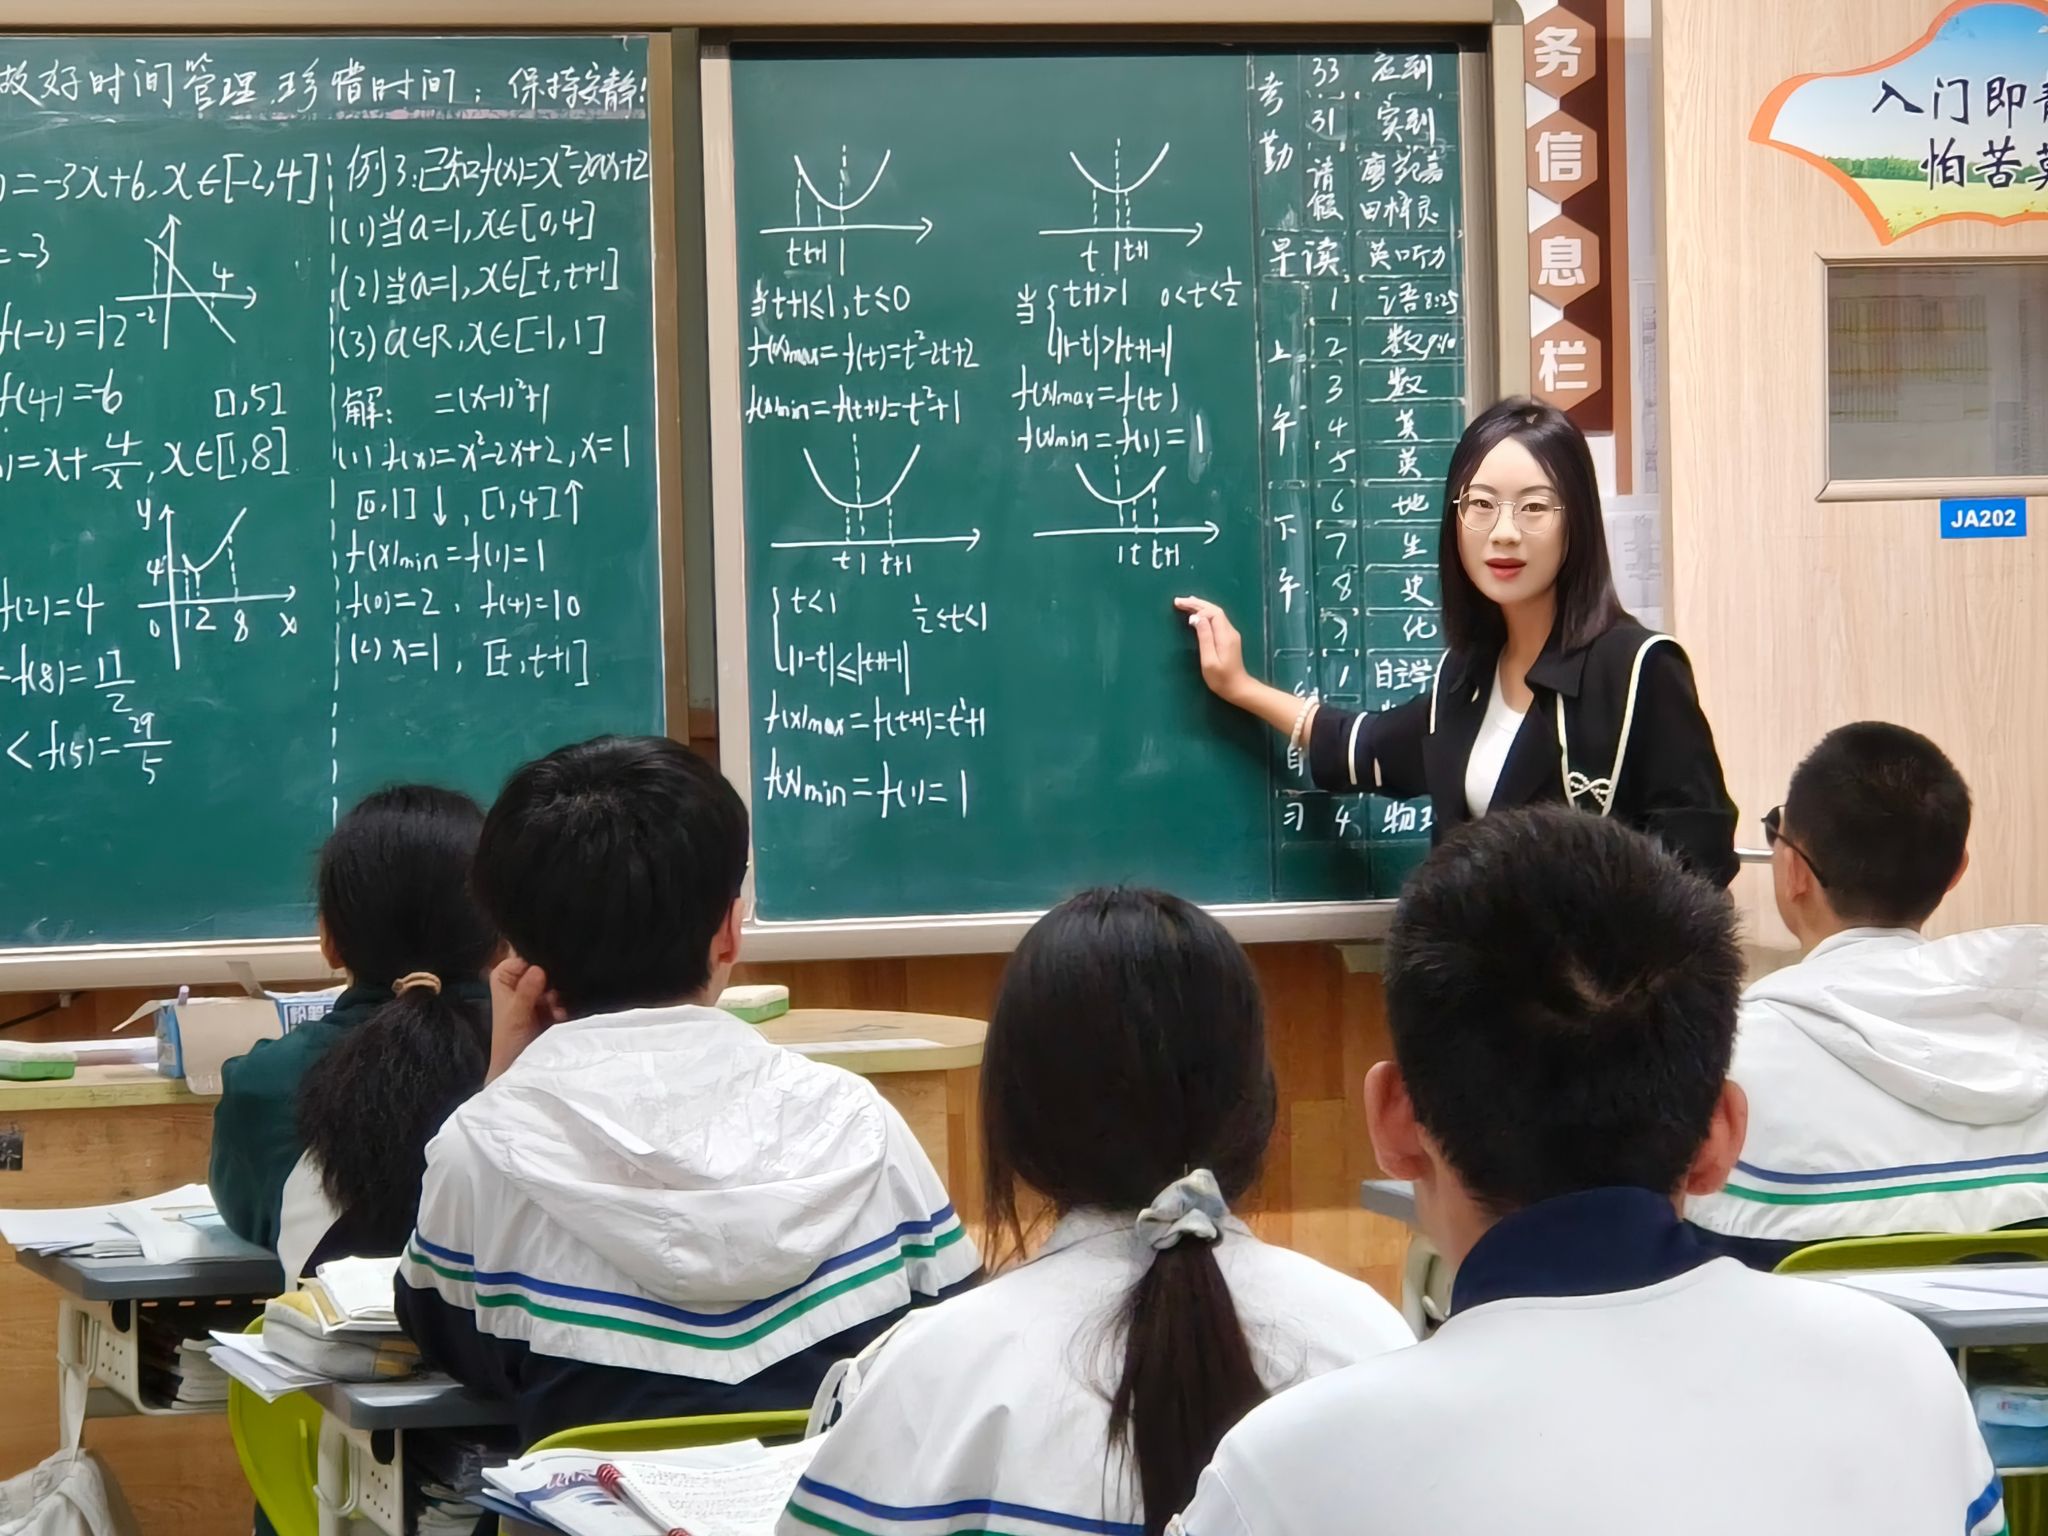 做好时间管理,珍惜时间,保持安静!
=-3x+6,x∈[-2,4]
=-3
4
-2
f(-2)=12
f(4)=-6
[1,5]
=x+4/x,x∈[1,8]
y
4
0 1 2 8 x
f(2)=4
=f(8)=17/2
<f(5)=29/5
例3:已知f(x)=x²-2ax+2
(1)当a=1,x∈[0,4]
(2)当a=1,x∈[t,t+1]
(3)a∈R,x∈[-1,1]
解: =(x-1)²+1
(1)f(x)=x²-2x+2,x=1
[0,1]↓,[1,4]↑
f(x)min=f(1)=1
f(0)=2,f(4)=10
(2)x=1,[t,t+1]
t t+1 1
当t+1≤1,t≤0
f(x)max=f(t)=t²-2t+2
f(x)min=f(t+1)=t²+1
t 1 t+1
当{t+1>1 0<t<1/2
|1-t|>|t+1-1|
f(x)max=f(t)
f(x)min=f(1)=1
t 1 t+1
{t<1 1/2≤t<1
|1-t|≤|t+1-1|
f(x)max=f(t+1)=t²+1
f(x)min=f(1)=1
1 t t+1
考勤
33 应到
31 实到
请假
早读 英听力
上午
1 语 8:25
2 数
3 数
4 英
5 英
下午
6 地
7 生
8 史
9 化
自习
1 自主学
4 物
务
信
息
栏
入门即
怕苦
JA202